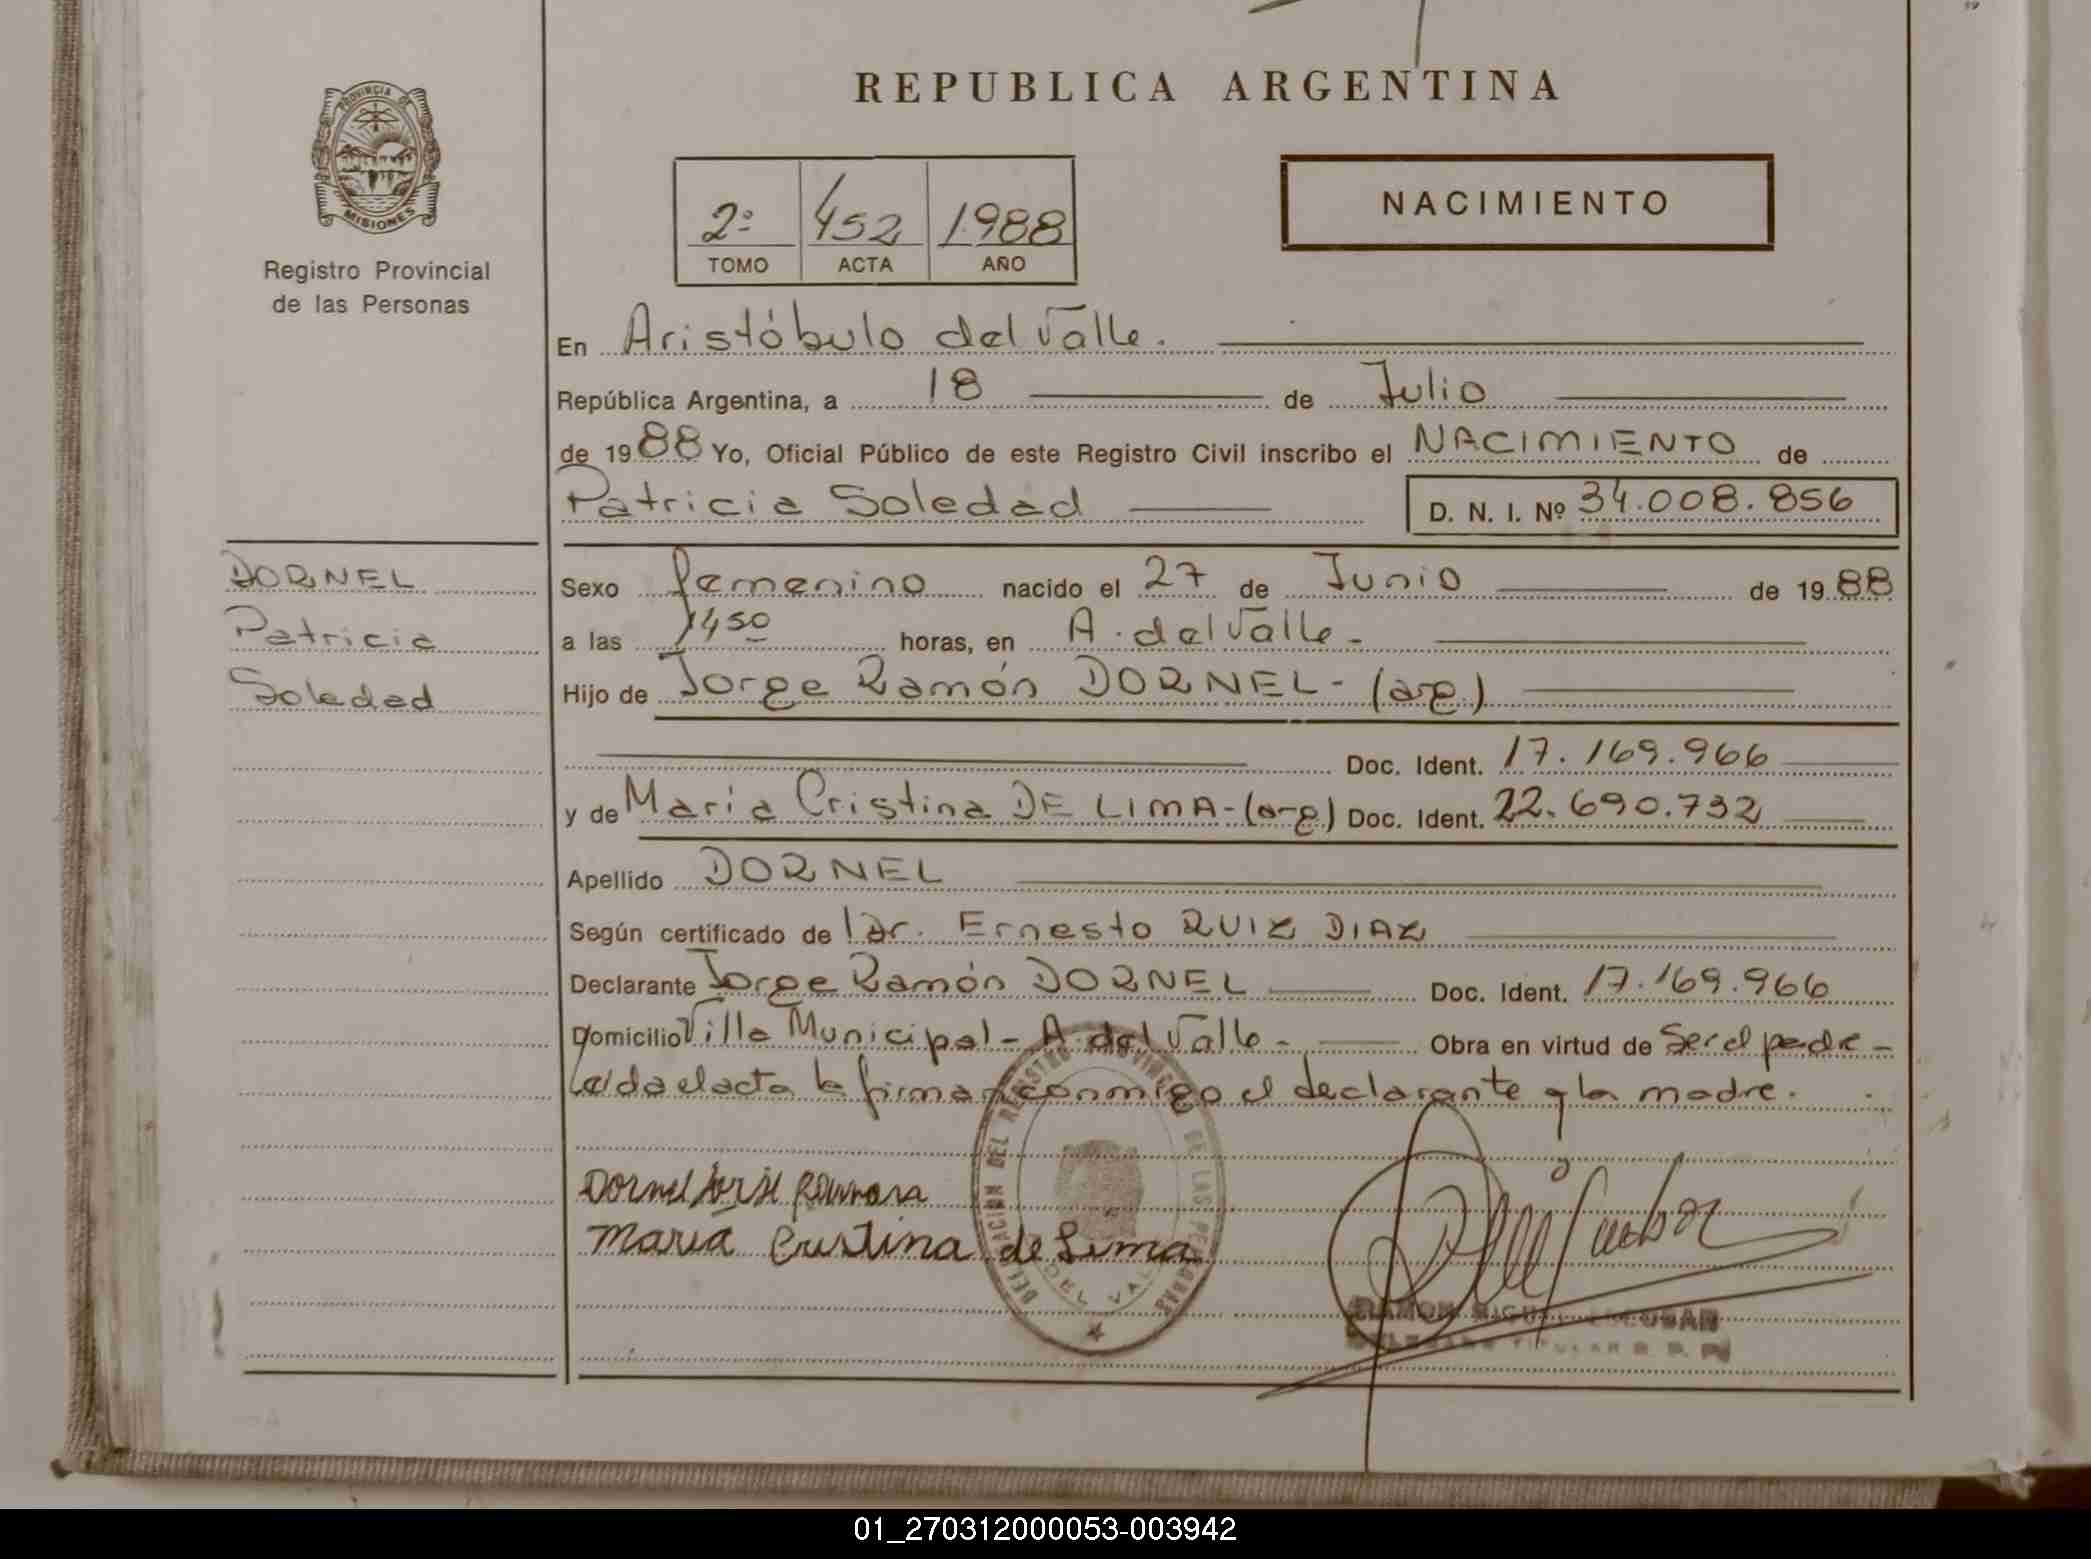 REPUBLICA ARGENTINA
PROVINCIA DE
MISIONES
Registro Provincial
de las Personas
2º 452 1988
TOMO ACTA AÑO
NACIMIENTO
En Aristóbulo del Valle.
República Argentina, a 18 de Julio
de 1988 Yo, Oficial Público de este Registro Civil inscribo el NACIMIENTO de
Patricia Soledad D. N. I. Nº 34.008.856
DORNEL
Patricia
Soledad
Sexo femenino nacido el 27 de Junio de 1988
a las 1450 horas, en A. del Valle-
Hijo de Jorge Ramón DORNEL- (arg.)
Doc. Ident. 17.169.966
y de María Cristina DE LIMA-(arg) Doc. Ident. 22.690.732
Apellido DORNEL
Según certificado de Dr. Ernesto RUIZ DIAZ
Declarante Jorge Ramón DORNEL Doc. Ident. 17.169.966
Domicilio Villa Municipal- A. del Valle- Obra en virtud de Ser el padre-
Leída el acta la firman conmigo el declarante y la madre.
Dornel Jorge
María Cristina de Lima
DELEGACION DEL REGISTRO PROVINCIAL DE LAS PERSONAS
DEL VALLE
RAMON MIGUEL ESCOBAR
DELEGADO TITULAR R. P. P.
01_270312000053-003942